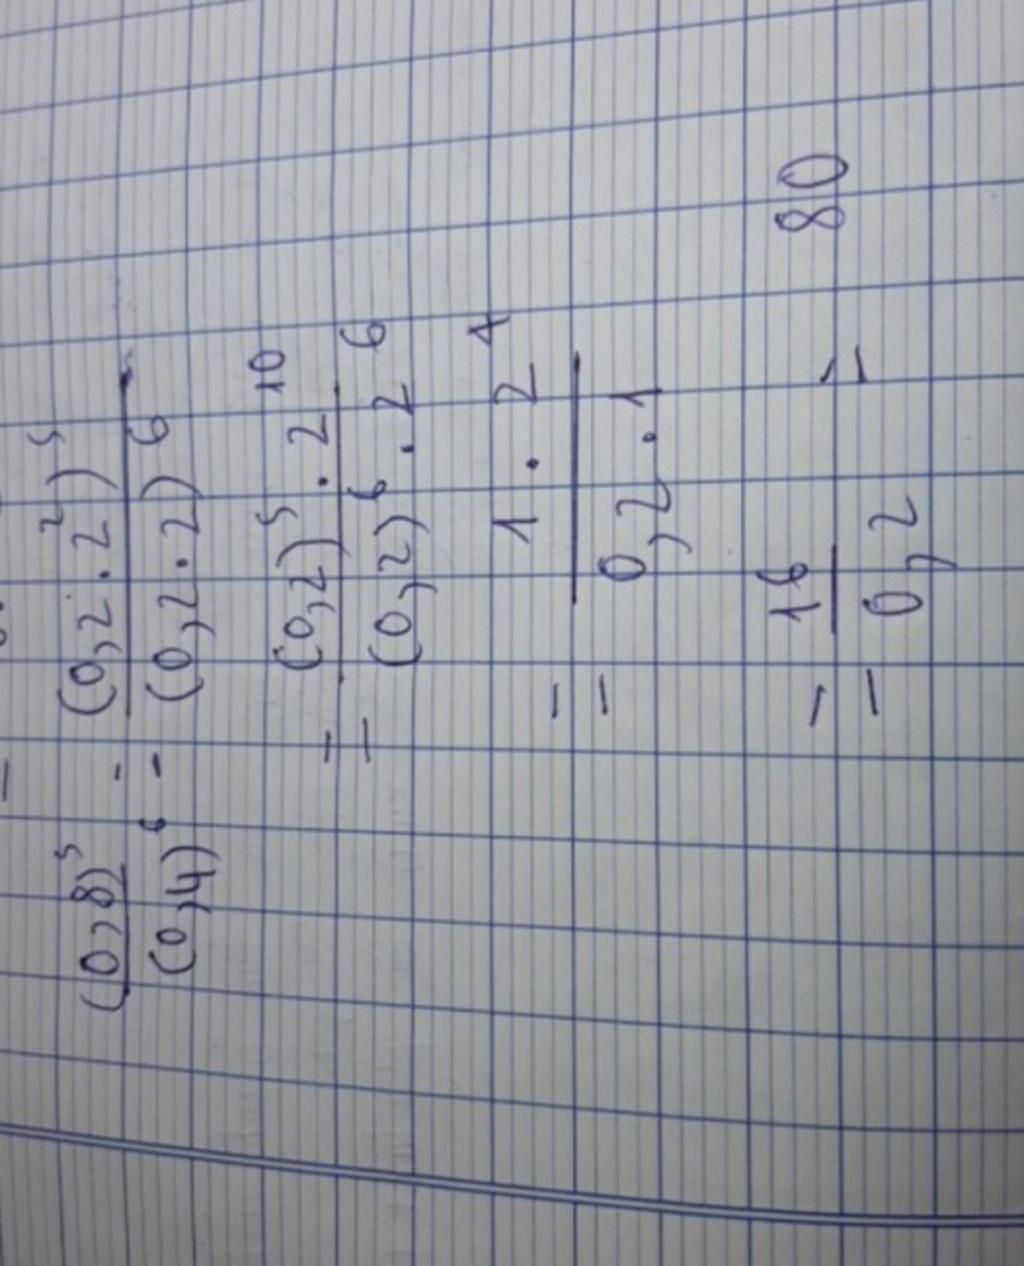 (0,8)⁵ / (0,4)⁶ = (0,2.2²)⁵ / (0,2.2)⁶
= (0,2)⁵.2¹⁰ / (0,2)⁶.2⁶
= 1.2⁴ / 0,2.1
= 16 / 0,2 = 80